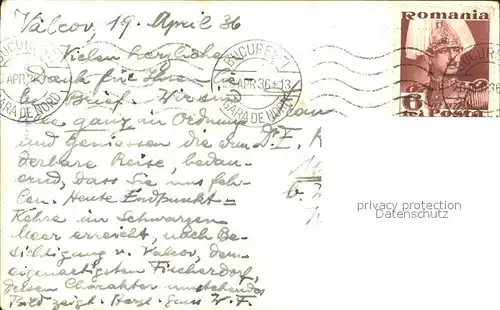 Valcov, 19. April 36
Vielen herzlichen
Dank für Ihren lie-
ben Brief. Wir sind
alle ganz in Ordnung
und geniessen die wun-
derbare Reise, bedau-
ernd, dass Sie uns feh-
len. Heute Endpunkt-
im Schwarzen
Meer erreicht, nach Be-
sichtigung v. Valcov, dem
eigenartigsten Fischerdorf,
dessen Charakter umstehendes
Bild zeigt. Herzl. Gruss W. F.
BUCUREȘTI
APR 36
GARA DE NORD
BUCUREȘTI
APR 36 13
GARA DE NORD
Romania
6
lei Posta
Dr. E.
privacy protection
www.ansichtskarten-center.de